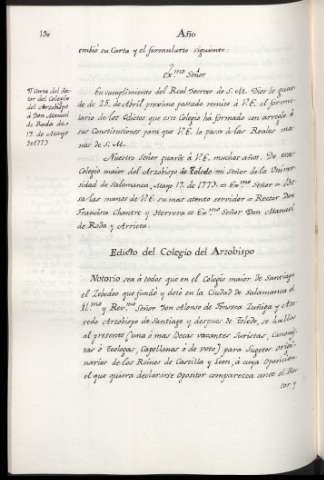 130
Año
embió su Carta y el formulario siguiente.
Ex.mo Señor
¶ Carta del Rec-
tor del Colegio
del Arzobispo
à Don Manuel
de Roda de
17. de Mayo
de 1773
En cumplimiento del Real Decreto de S. M. Dios le guar-
de de 25. de Abril proximo pasado remito à V. E. el formu-
lario de los Edictos que este Colegio há formado con arreglo à
sus Constituciones para que V. E. lo pase à las Reales ma-
nos de S. M.
Nuestro Señor guarde à V. E. muchos años. De este
Colegio maior del Arzobispo de Toledo mi Señor de la Univer-
sidad de Salamanca, Mayo 17. de 1773. = Ex.mo Señor = Be-
sa las manos de V. E. su mas atento servidor = Rector Don
Francisco Chantre y Herrera = Ex.mo Señor Don Manuel
de Roda y Arrieta.
Edicto del Colegio del Arzobispo
Notorio sea à todos que en el Colegio maior de Santiago
el Zebedeo que fundó y dotó en la Ciudad de Salamanca el
Il.mo y Rev.mo Señor Don Alonso de Fonseca Zuñiga y Aze-
vedo Arzobispo de Santiago y despues de Toledo, se hallan
al presente (una ó mas Becas vacantes Juristas, Canonis-
tas ó Teologas, Capellanas ó de voto) para Sugetos origi-
narios de los Reinos de Castilla y Leon, à cuya Oposicion
el que quiera declararse Opositor comparezca ante el Rec-
tor y